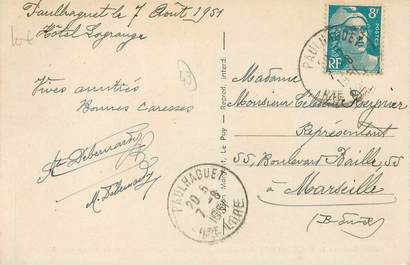 Paulhaguet le 7 Août 1951
Hôtel Lagrange
Vives amitiés
Bonnes caresses
Debernardy
M. Debernardy
Le Puy - Reprod. interd.
8F
POSTES
RF
PAULHAGUET
PAULHAGUET
20 5
7 -8
1951
HTE LOIRE
Madame
Monsieur Célestin Meynier
Représentant
55, Boulevard Baille, 55
à Marseille
(B du R)